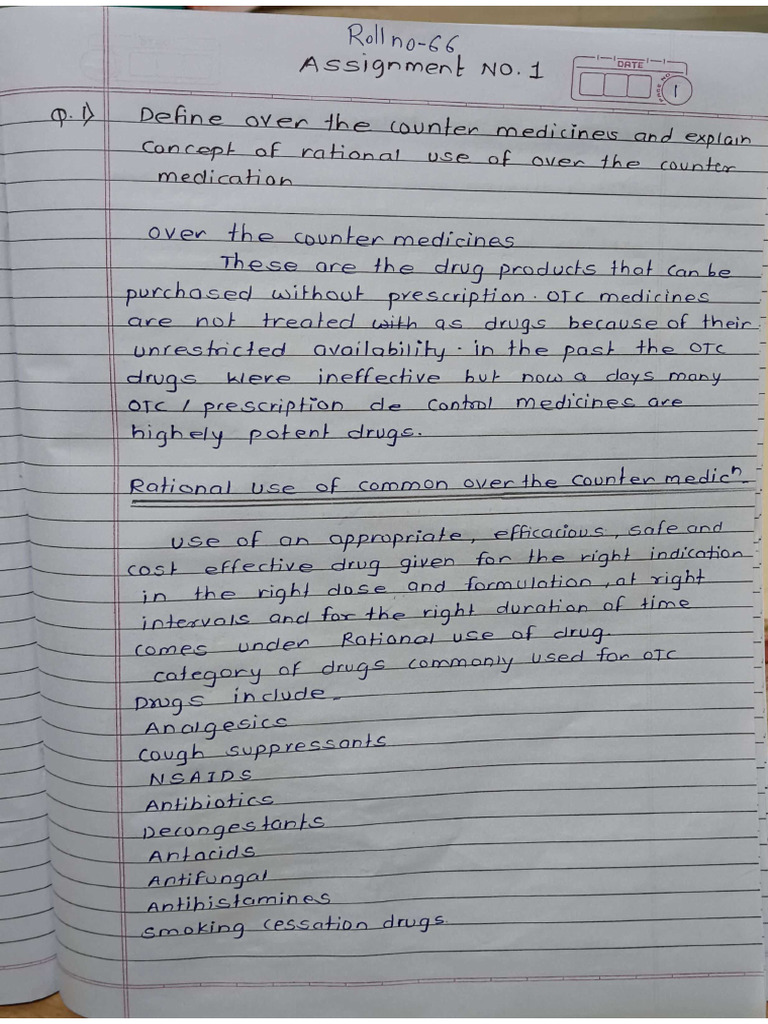 Roll no-66
Assignment NO. 1
DATE
PAGE NO.
1
Q.1) Define over the counter medicines and explain
concept of rational use of over the counter
medication
over the counter medicines
These are the drug products that can be
purchased without prescription. OTC medicines
are not treated with as drugs because of their
unrestricted availability. in the past the OTC
drugs were ineffective but now a days many
OTC / prescription de control medicines are
highely potent drugs.
Rational use of common over the counter medicn-
use of an appropriate, efficacious, safe and
cost effective drug given for the right indication
in the right dose and formulation, at right
intervals and for the right duration of time
comes under Rational use of drug.
category of drugs commonly used for OTC
Drugs include-
Analgesics
cough suppressants
NSAIDS
Antibiotics
Decongestants
Antacids
Antifungal
Antihistamines
smoking cessation drugs